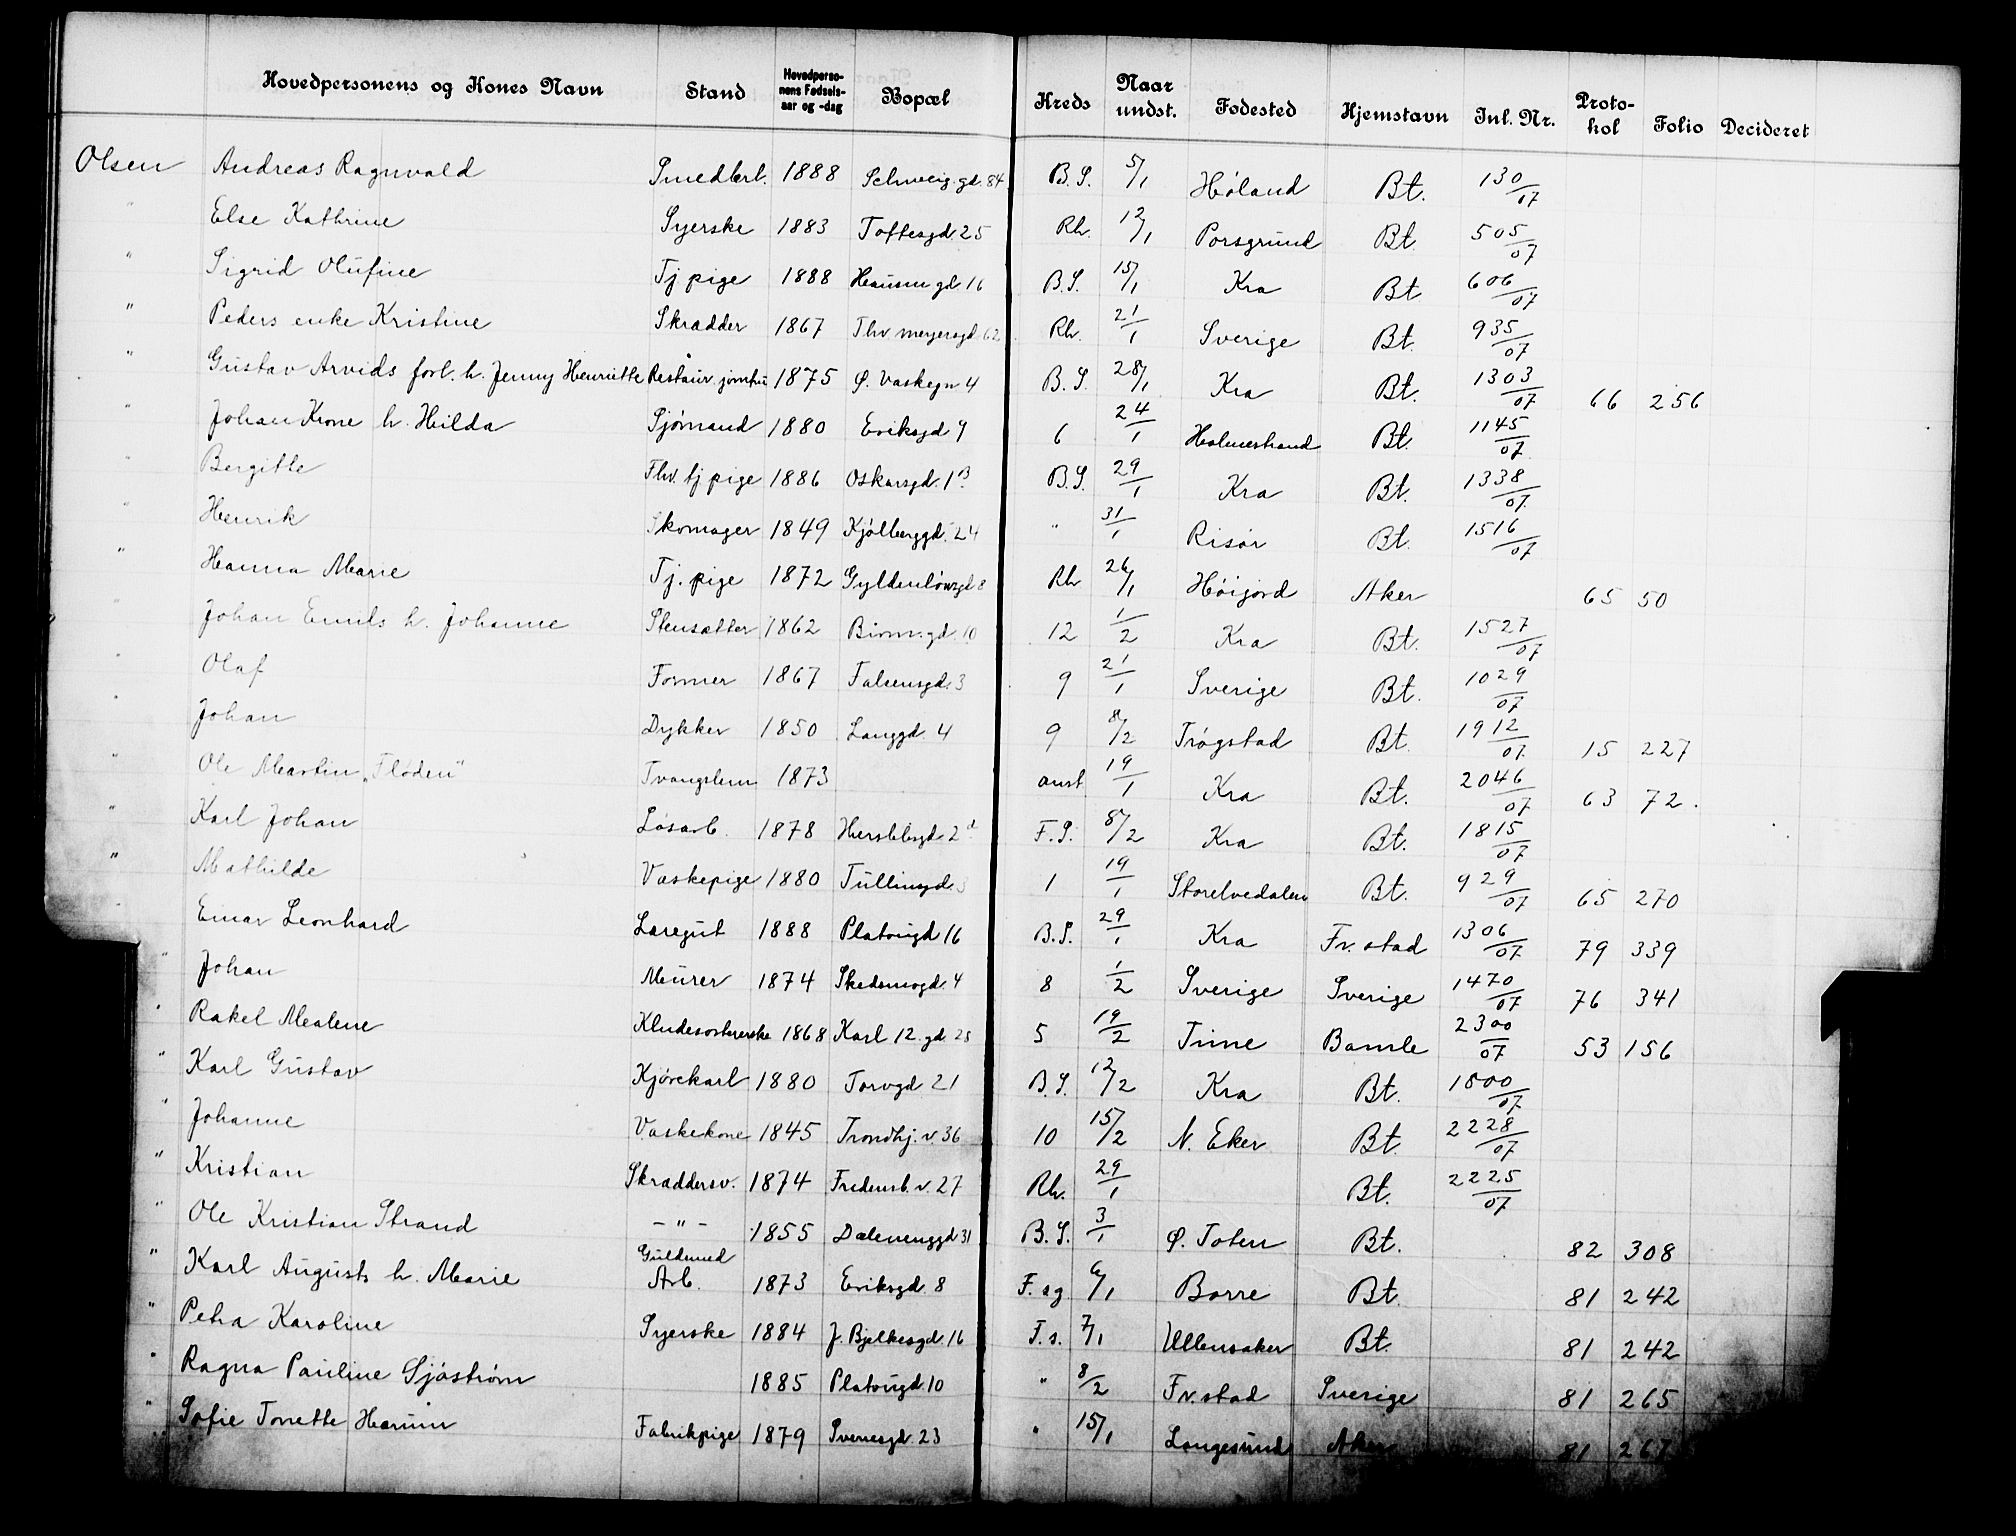 Hovedpersonens og Kones Navn Stand Hovedperso-nens Fødsels-aar og -dag Bopæl Kreds Naar undst. Fødested Hjemstavn Inl. Nr. Proto-kol Folio Decideret
Olsen Andreas Ragnvald Smedarb. 1888 Schweig.gd. 84 B.S. 5/1 Høland Bt. 130/07
" Else Kathrine Syerske 1883 Toftesgd. 25 Rh. 12/1 Porsgrund Bt. 505/07
" Sigrid Olufine Tj pige 1888 Hausm gd. 16 B.S. 15/1 Kra Bt 606/07
" Peders enke Kristine Skrædder 1867 Thv meyersgd 62 Rh. 21/1 Sverige Bt. 935/07
" Gustav Arvids forl. h. Jenny Henriette Restaur. jomfru 1875 Ø. Vaskegn 4 B.S. 28/1 Kra Bt. 1303/07 66 256
" Johan Krone h. Hilda Sjømand 1880 Eriksgd 9 6 24/1 Holmestrand Bt. 1145/07
" Bergitte Fhv. tj pige 1886 Oskarsgd. 1B B.S. 29/1 Kra Bt. 1338/07
" Henrik Skomager 1849 Kjølberggd. 24 " 31/1 Risør Bt. 1516/07
" Hanna Marie Tj. pige 1872 Gyldenløvesgd 8 Rh 26/1 Høijord Aker 65 50
" Johan Emils h. Johanne Stensætter 1862 Birm.gd. 10 12 1/2 Kra Bt. 1527/07
" Olaf Former 1867 Falsensgd. 3 9 21/1 Sverige Bt. 1029/07
" Johan Dykker 1850 Langgd. 4 9 8/2 Trøgstad Bt. 1912/07 15 227
" Ole Martin „Fløden" Tvangslem 1873 anst 19/1 Kra Bt. 2046/07 63 72.
" Karl Johan Løsarb. 1878 Herslebsgd. 2d F.S. 8/2 Kra Bt. 1815/07
" Mathilde Vaskepige 1880 Tullinsgd. 3 1 19/1 Storelvedalen Bt. 929/07 65 270
" Einar Leonhard Læregut 1888 Platougd 16 B.S. 29/1 Kra Fr. stad 1306/07 79 339
" Johan Murer 1874 Skedsmogd. 4 8 1/2 Sverige Sverige 1470/07 76 341
" Rakel Malene Kludesorterske 1868 Karl 12. gd. 25 5 19/2 Time Bamle 2300/07 53 156
" Karl Gustav Kjørekarl 1880 Torvgd 21 B.S. 12/2 Kra Bt. 1800/07
" Johanne Vaskekone 1845 Trondhj. v. 36 10 15/2 N. Eker Bt. 2228/07
" Kristian Skræddersv. 1874 Fredensb. v. 27 Rh. 29/1 Bt. 2225/07
" Ole Kristian Strand - " - 1855 Dælenenggd 31 B.S. 3/1 Ø. Toten Bt. 82 308
" Karl Augusts h. Marie Guldsmed Arb. 1873 Eriksgd. 8 F. ag 6/1 Borre Bt. 81 242
" Petra Karoline Syerske 1884 J. Bjelkesgd. 16 F. s. 7/1 Ullensaker Bt. 81 242
" Ragna Pauline Sjøstrøm 1885 Platougd. 10 " 8/2 Fr. stad Sverige 81 265
" Sofie Tonette Harum Fabrikpige 1879 Svenesgd. 23 " 15/1 Langesund Aker 81 267